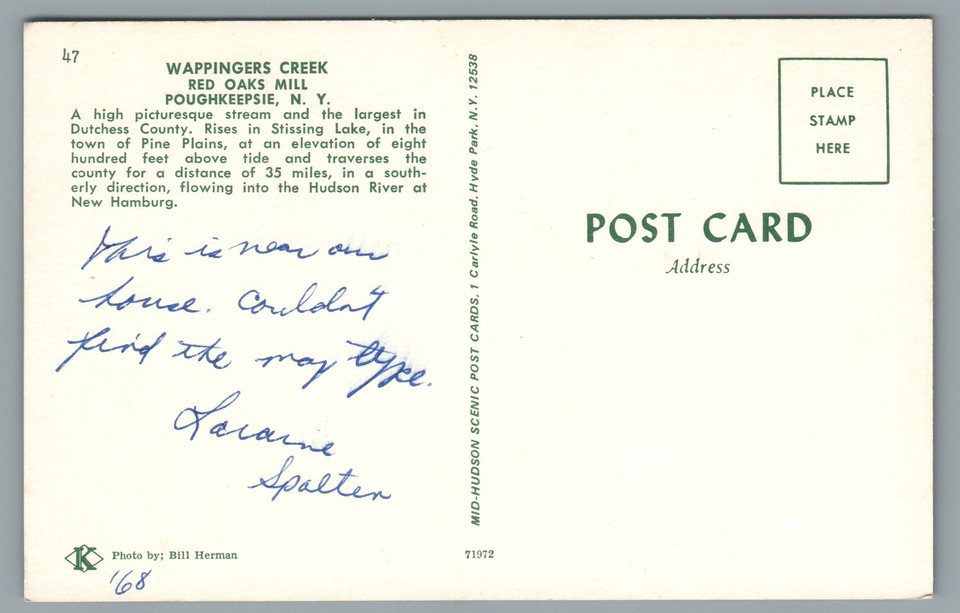 47
WAPPINGERS CREEK
RED OAKS MILL
POUGHKEEPSIE, N. Y.
A high picturesque stream and the largest in
Dutchess County. Rises in Stissing Lake, in the
town of Pine Plains, at an elevation of eight
hundred feet above tide and traverses the
county for a distance of 35 miles, in a south-
erly direction, flowing into the Hudson River at
New Hamburg.
This is near our
house. Couldn't
find the map type.
Loraine
Spalten
K
Photo by; Bill Herman
'68
MID-HUDSON SCENIC POST CARDS, 1 Carlyle Road, Hyde Park, N.Y. 12538
71972
PLACE
STAMP
HERE
POST CARD
Address